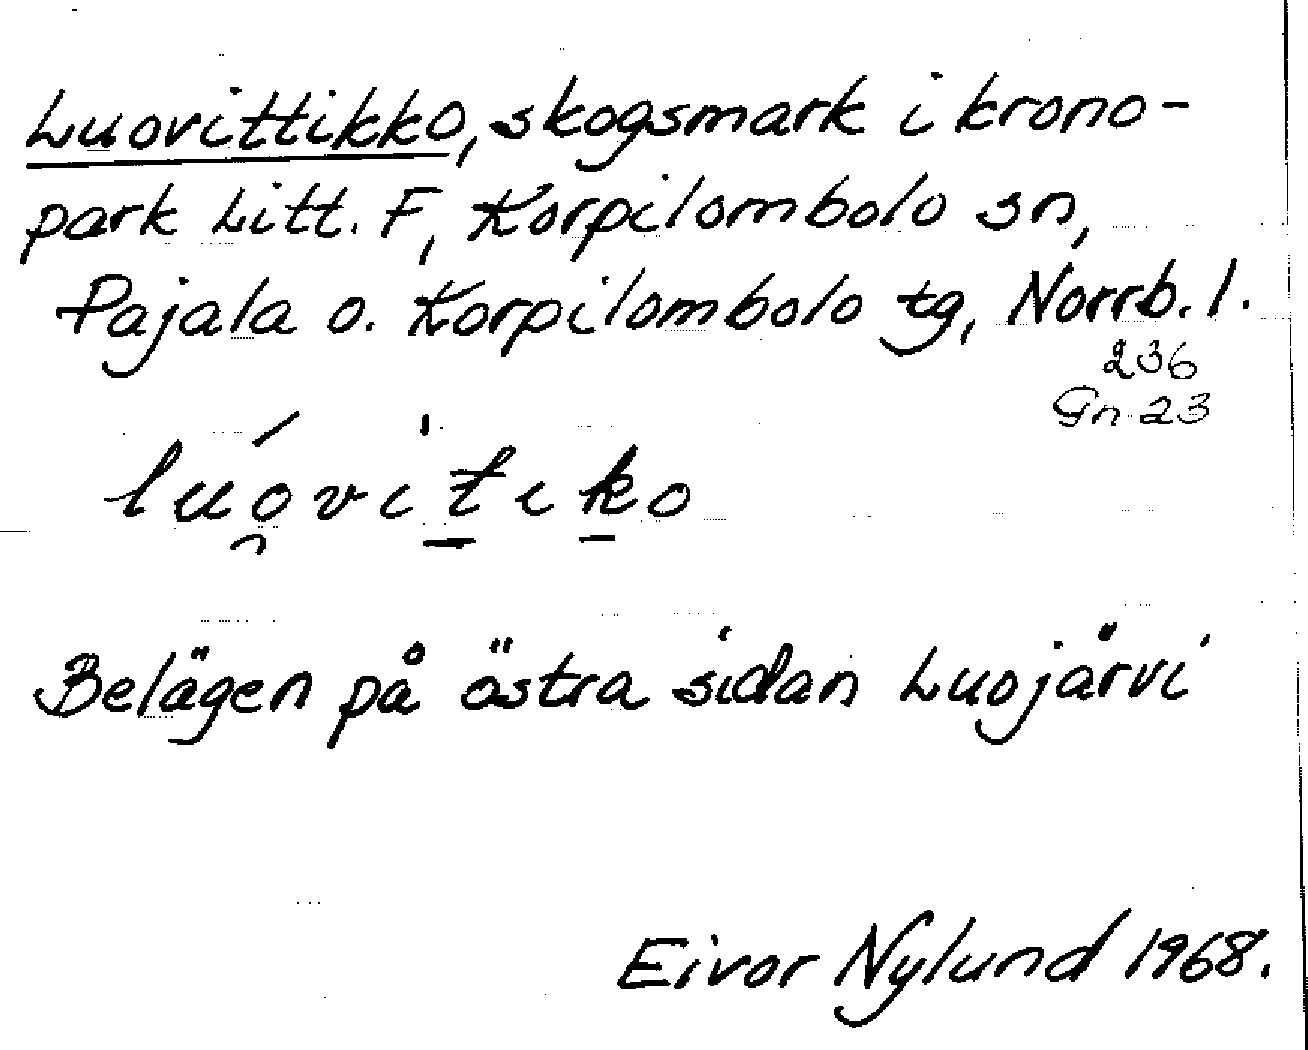 Luovittikko, skogsmark i krono-
park Litt. F, Korpilombolo sn,
Pajala o. Korpilombolo tg, Norrb. l.
236
Gn 23
luó̯vit̠ik̠o
Belägen på östra sidan Luojärvi
Eivor Nylund 1968.